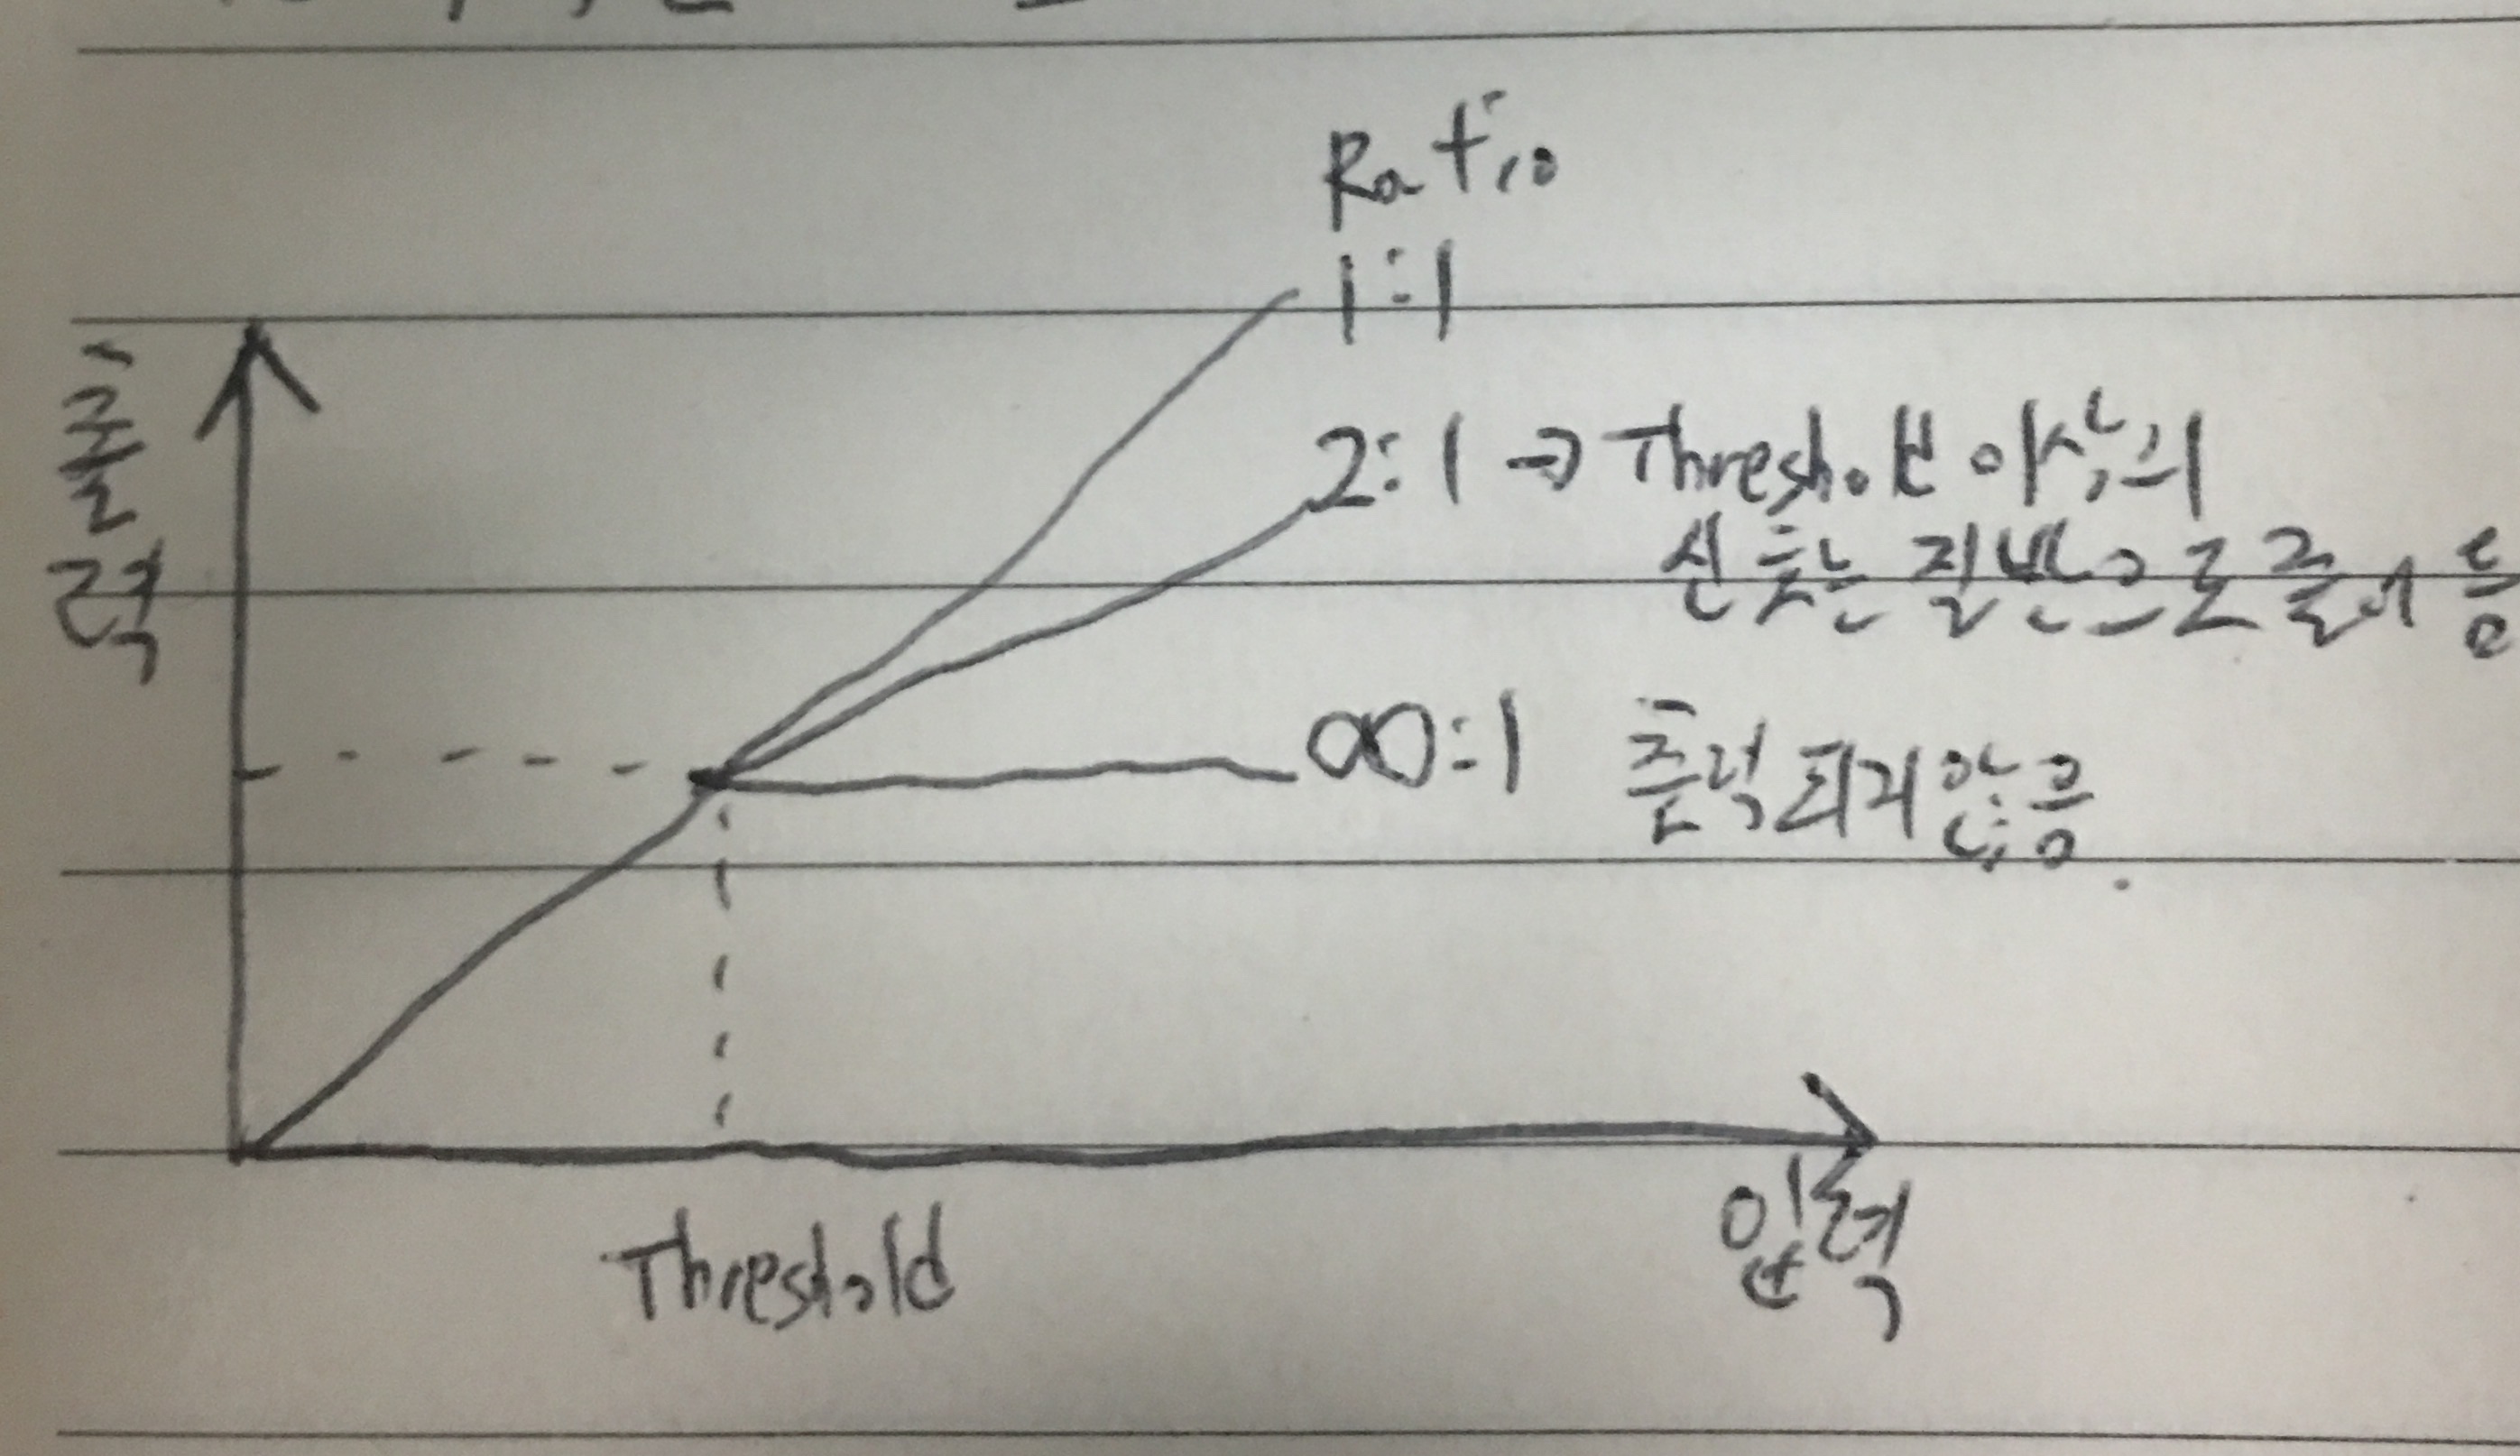 Ratio
1:1
출력
2:1 → Threshold 이상의
신호는 절반으로 줄어듬
∞:1 출력되지 않음.
입력
Threshold